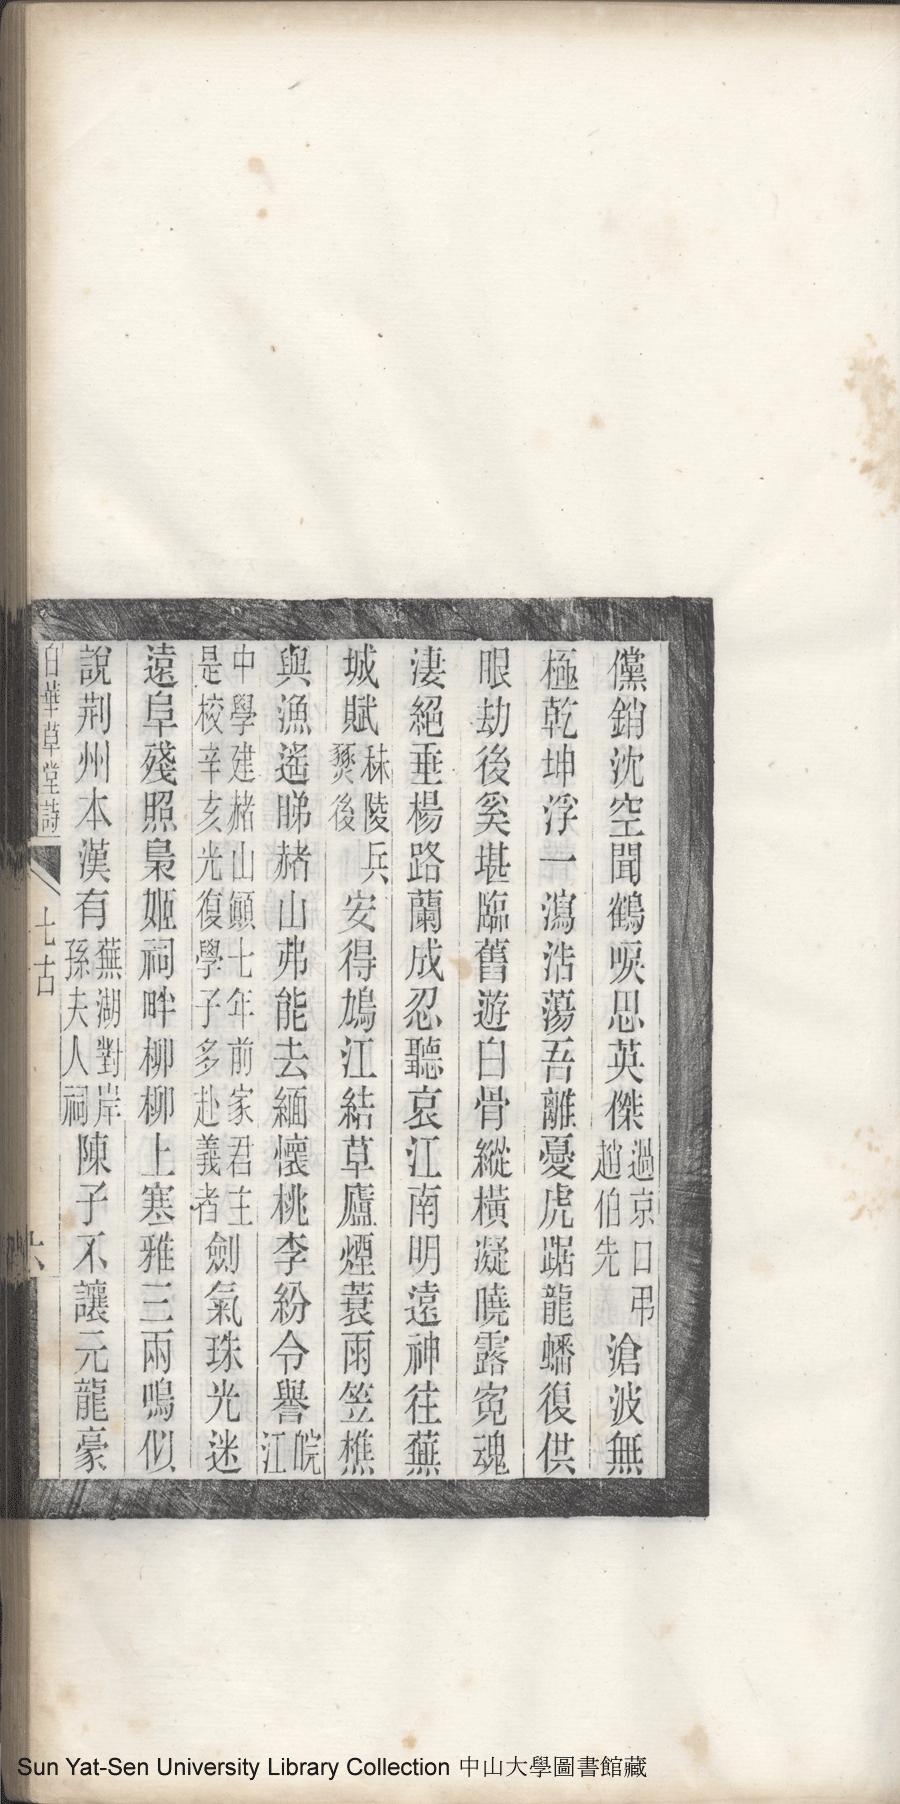 儻銷沈空聞鶴唳思英傑過京口弔趙伯先滄波無
極乾坤浮一瀉浩蕩吾離憂虎踞龍蟠復供
眼劫後奚堪臨舊遊白骨縱橫凝曉露寃魂
淒絕垂楊路蘭成忍聽哀江南明遠神往蕪
城賦秣陵兵燹後安得鳩江結草廬煙蓑雨笠樵
與漁遙睇赭山弗能去緬懷桃李紛令譽皖江
中學建赭山顚七年前家君主是校辛亥光復學子多赴義者劍氣珠光迷
遠阜殘照梟姬祠畔柳柳上寒雅三兩鳴似
說荆州本漢有蕪湖對岸孫夫人祠陳子不讓元龍豪
白華草堂詩 七古 六
Sun Yat-Sen University Library Collection 中山大學圖書館藏